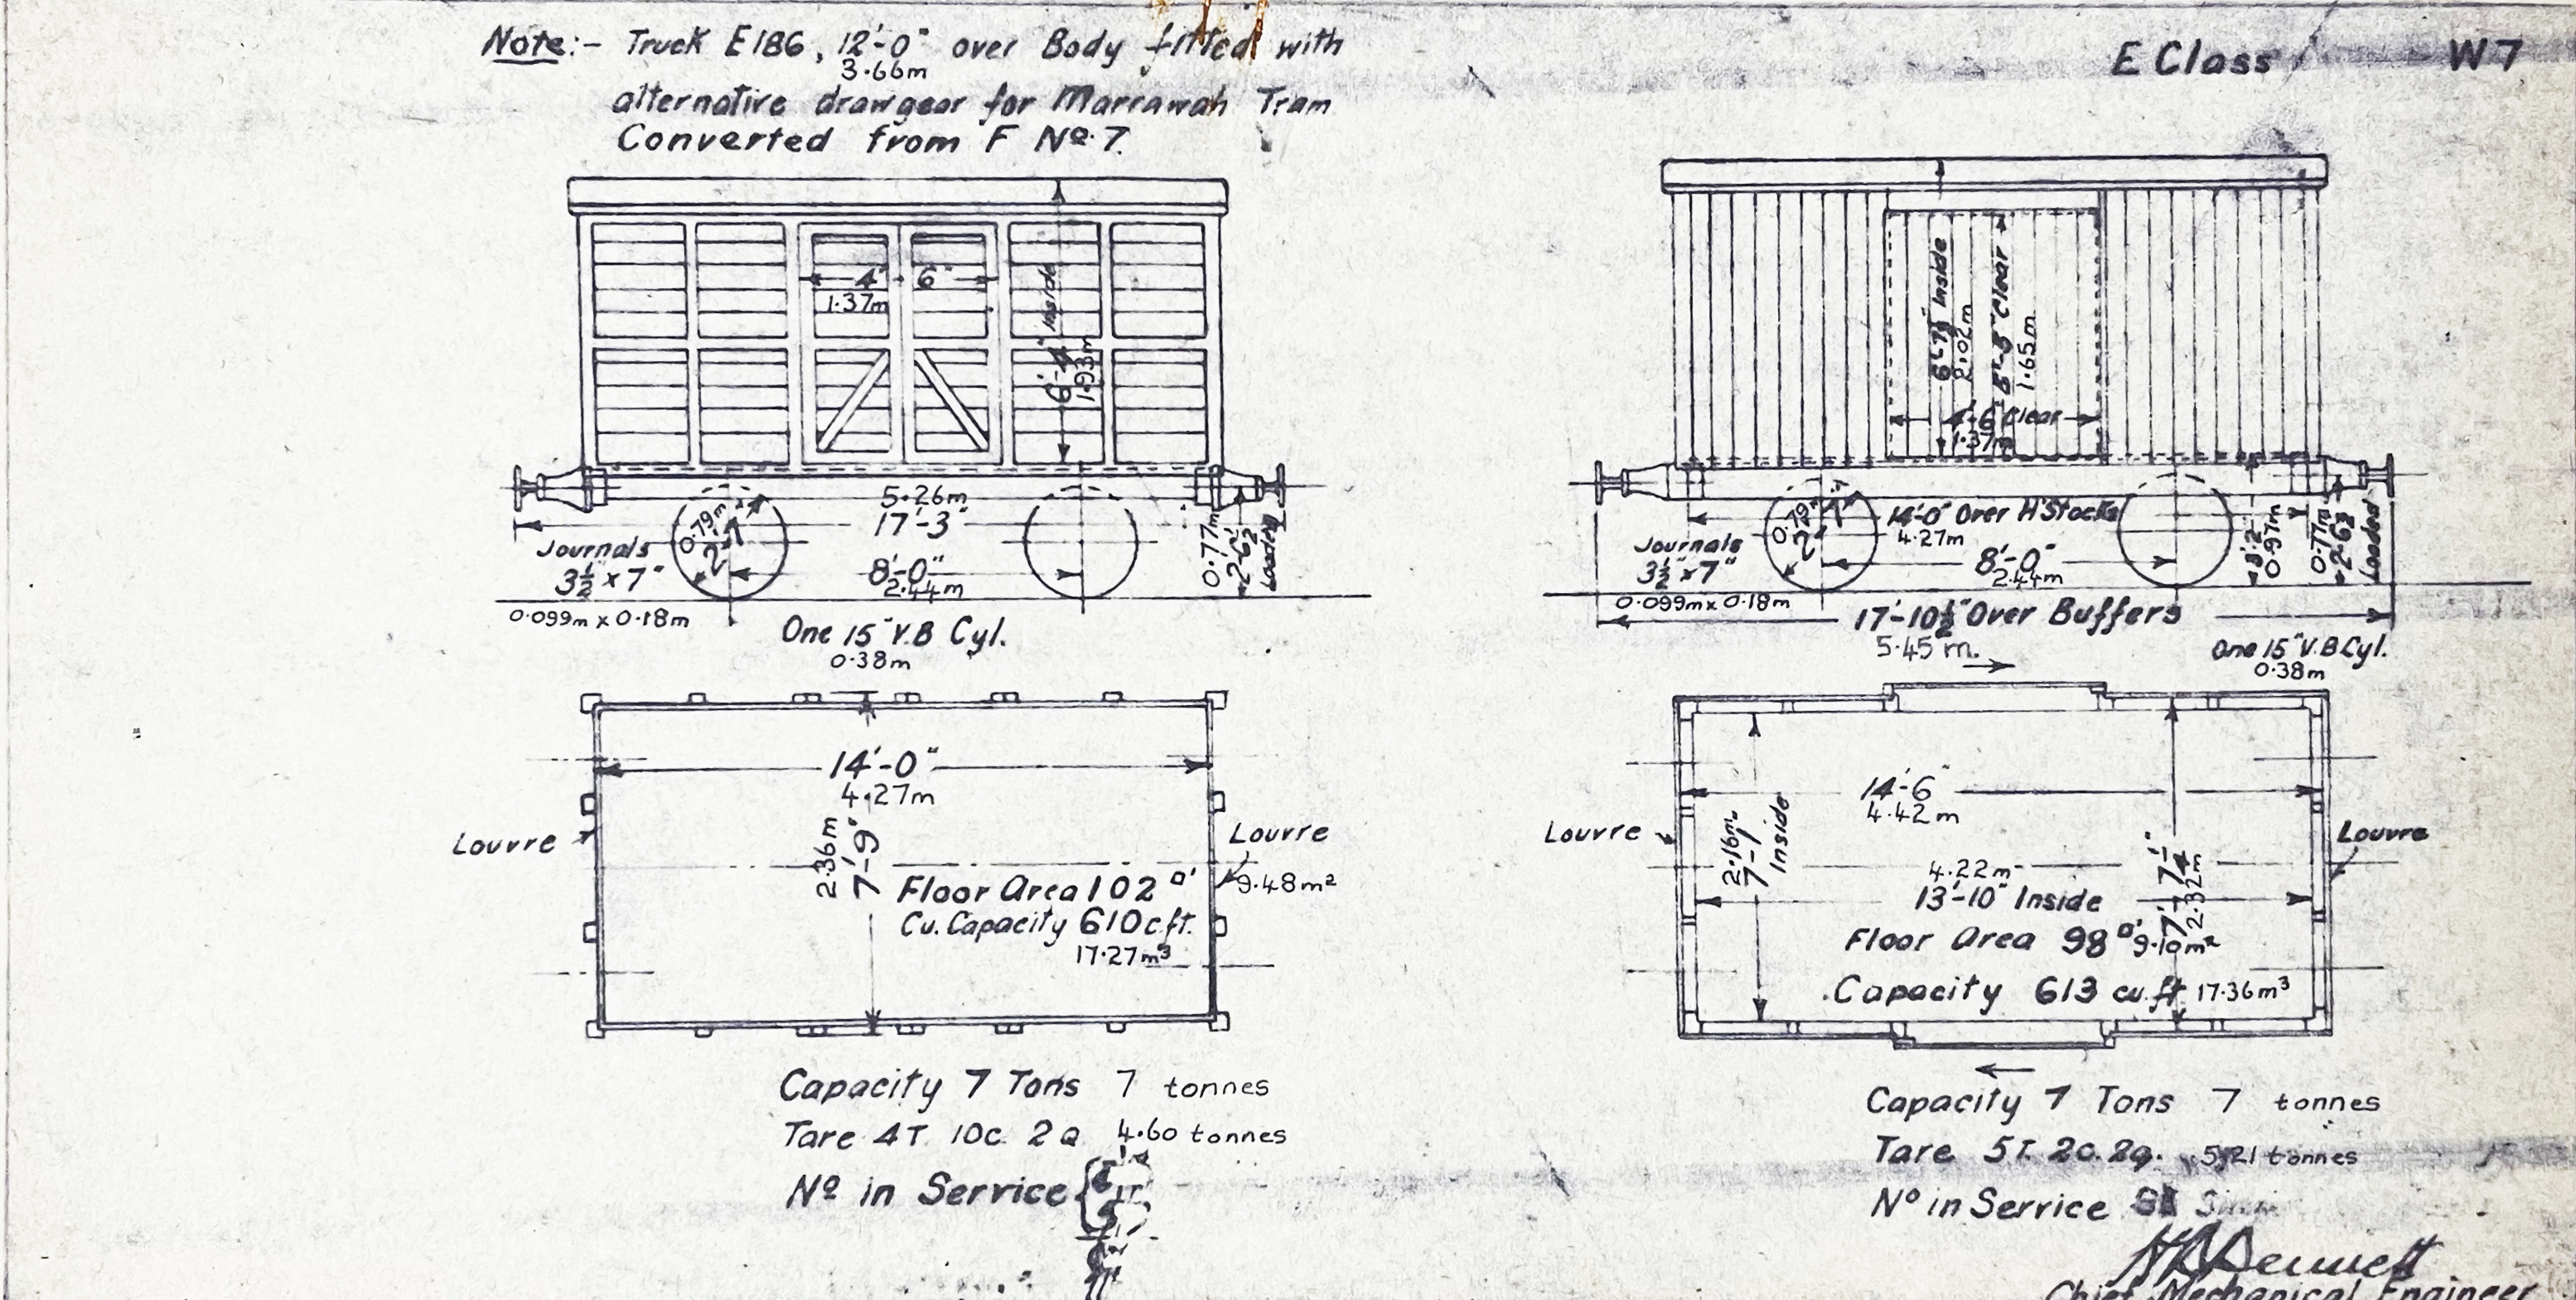 Note:- Truck E186, 12'-0" over Body fitted with
3·66m
alternative drawgear for Marrawah Tram
Converted from F Nº·7.
E Class W7
4'-6"
1·37m
6'-4" Inside
1·93m
5·26m
17'-3"
0·79m
2'-7"
8'-0"
2·44m
Journals
3½" x 7"
0·099m x 0·18m
0·77m
Loaded
One 15" V.B Cyl.
0·38m
14'-0"
4·27m
2·36m
7'-9"
Louvre
Louvre
Floor Area 102 □'
9·48m²
Cu. Capacity 610 c.ft.
17·27m³
Capacity 7 Tons 7 tonnes
Tare 4T 10c 2q 4·60 tonnes
Nº in Service
6'-7½" Inside
2·02m
5'-5" Clear
1·65m
4'-6" Clear
1·37m
0·79m
2'-7"
14'-0" Over H'Stocks
4·27m
8'-0"
2·44m
Journals
3½" x 7"
0·099m x 0·18m
3'-2"
0·97m
0·77m
Loaded
17'-10½" Over Buffers
5·45 m.
One 15" V.B Cyl.
0·38m
14'-6"
4·42m
2·16m
7'-1"
Inside
Louvre
Louvre
4·22m
13'-10" Inside
2·32m
Floor Area 98 □' 9·10m²
Capacity 613 cu.ft 17·36m³
Capacity 7 Tons 7 tonnes
Tare 5T. 2c. 2q. 5·21 tonnes
Nº in Service
Chief Mechanical Engineer